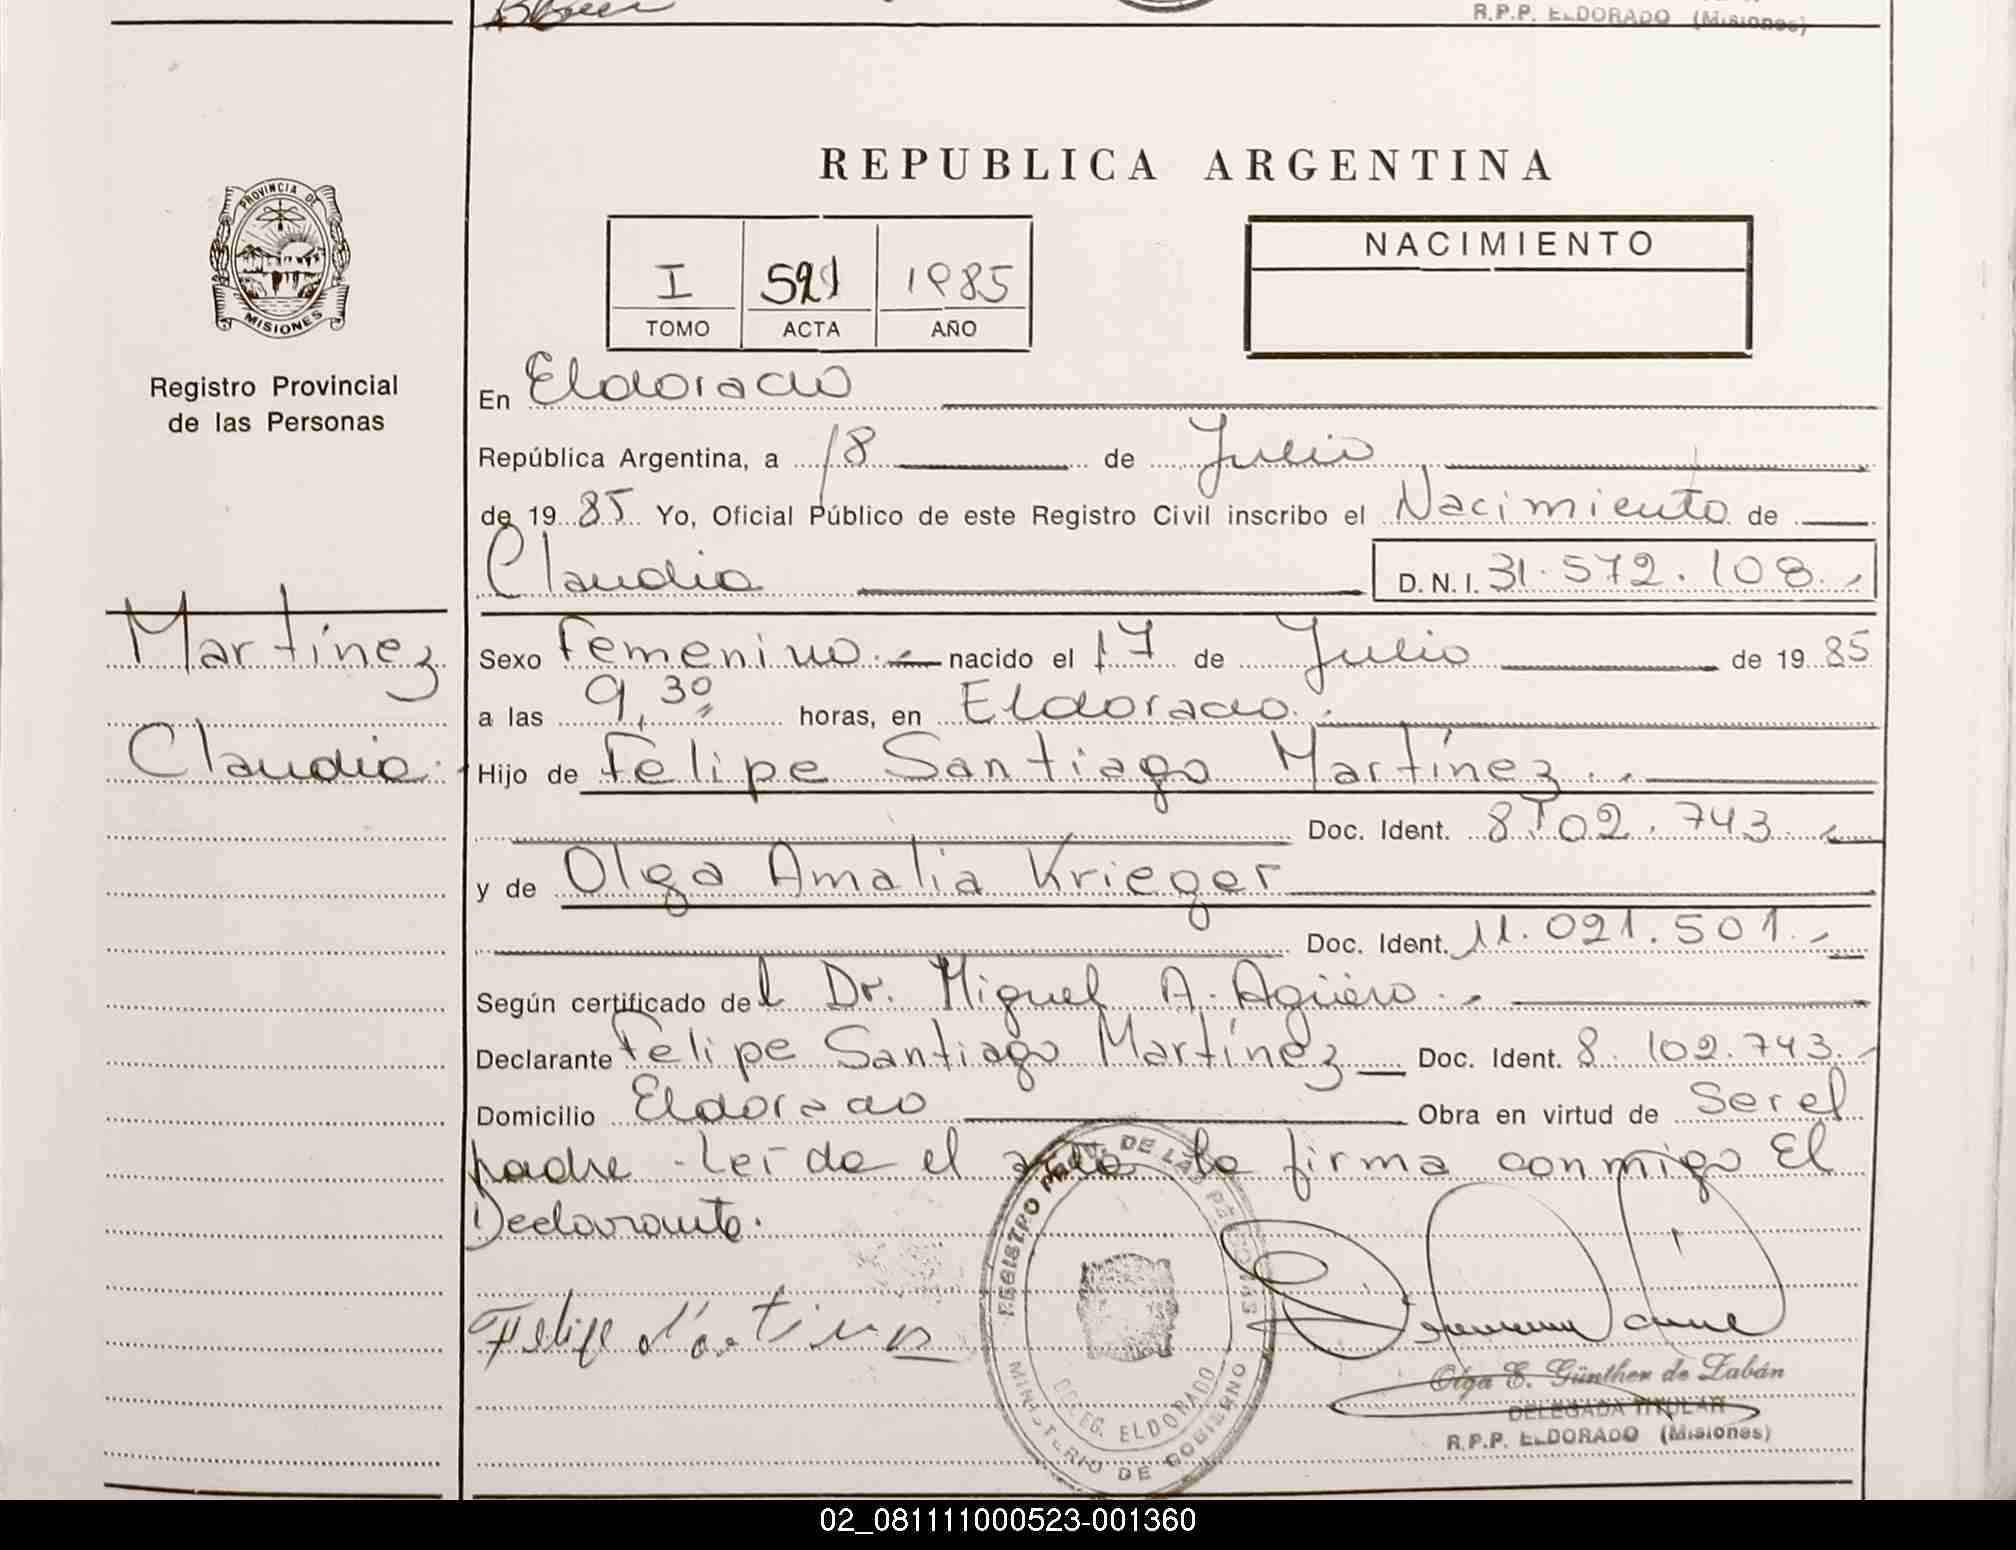 R.P.P. ELDORADO (Misiones)
REPUBLICA ARGENTINA
PROVINCIA DE
MISIONES
Registro Provincial
de las Personas
I 521 1985
TOMO ACTA AÑO
NACIMIENTO
En Eldorado
República Argentina, a 18 de Julio
de 19 85 Yo, Oficial Público de este Registro Civil inscribo el Nacimiento de
Claudia D.N.I. 31.572.108.-
Martínez
Claudia
Sexo Femenino.- nacido el 17 de Julio de 19 85
a las 9,30 horas, en Eldorado.
Hijo de Felipe Santiago Martínez.-
Doc. Ident. 8.102.743.-
y de Olga Amalia Krieger
Doc. Ident. 11.021.501.-
Según certificado del Dr. Miguel A. Agüero.-
Declarante Felipe Santiago Martínez Doc. Ident. 8.102.743.-
Domicilio Eldorado Obra en virtud de Ser el
padre - Leída el acta la firma conmigo El
Declarante.
Felipe Martinez
REGISTRO PROV. DE LAS PERSONAS
DELEG. ELDORADO
MINISTERIO DE GOBIERNO
Olga E. Günther de Zabán
DELEGADA TITULAR
R.P.P. ELDORADO (Misiones)
02_081111000523-001360